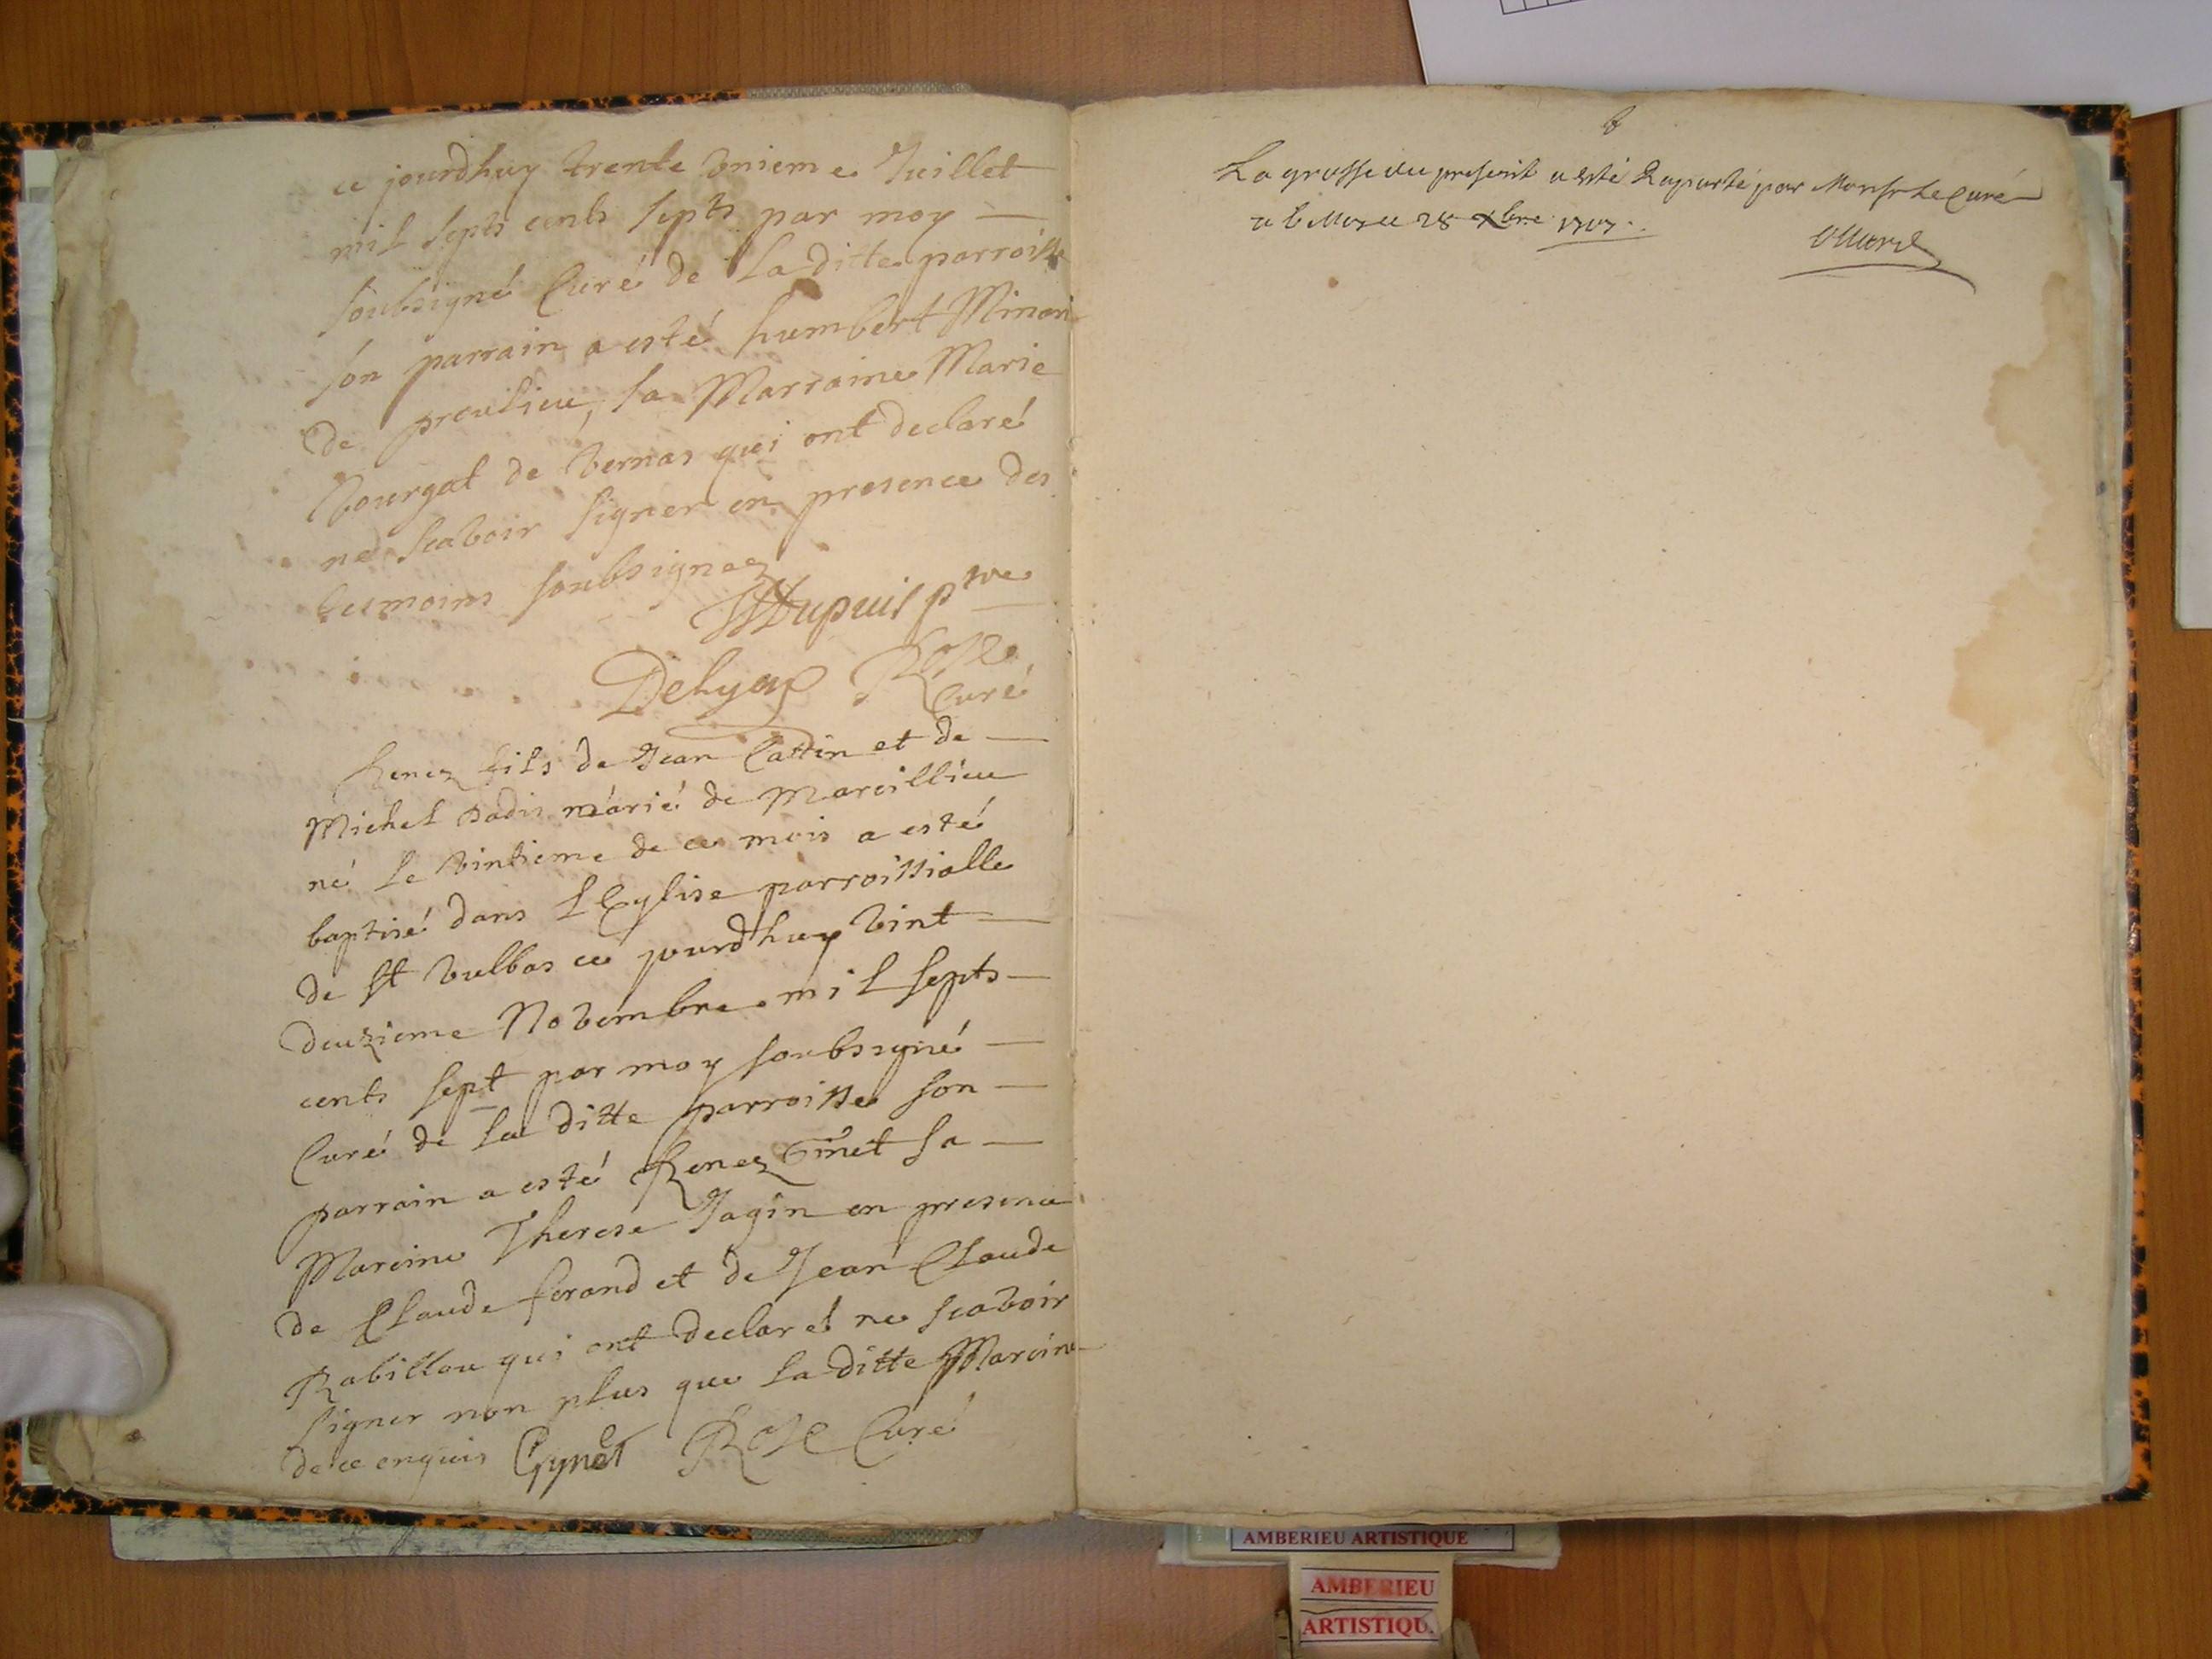 ce jourdhuy trente vnieme Juillet
mil septs cents septs par moy
soubsigné Curé de La ditte parroisse
son parrain a esté humbert Minan
de proulieu, sa Marraine Marie
Bourgat de vernas qui ont declaré
ne scavoir signer en presence des
tesmoins soubsignez
Dupuis ptre
Delyon Rose
Curé
Renez fils de Jean Cattin et de
Michel marié de Marcillieu
né Le vintieme de ce mois a esté
baptisé dans L Eglise parroissialle
de st vulbas ce jourdhuy vint
deuzieme Novembre mil septs
cents sept par moy soubsigné
Curé de La ditte parroisse son
parrain a esté Renez Ginet sa
Mareine Therese Jagin en presence
de Claude ferand et de Jean Claude
Rabillou qui ont declaret ne scavoir
signer non plus que La ditte Mareine
de ce enquis Gynet Rose Curé
6
La grosse du present a esté Raporté par Monsr Le Curé
ce 28 xbre 1707.
AMBERIEU ARTISTIQUE
AMBERIEU
ARTISTIQU